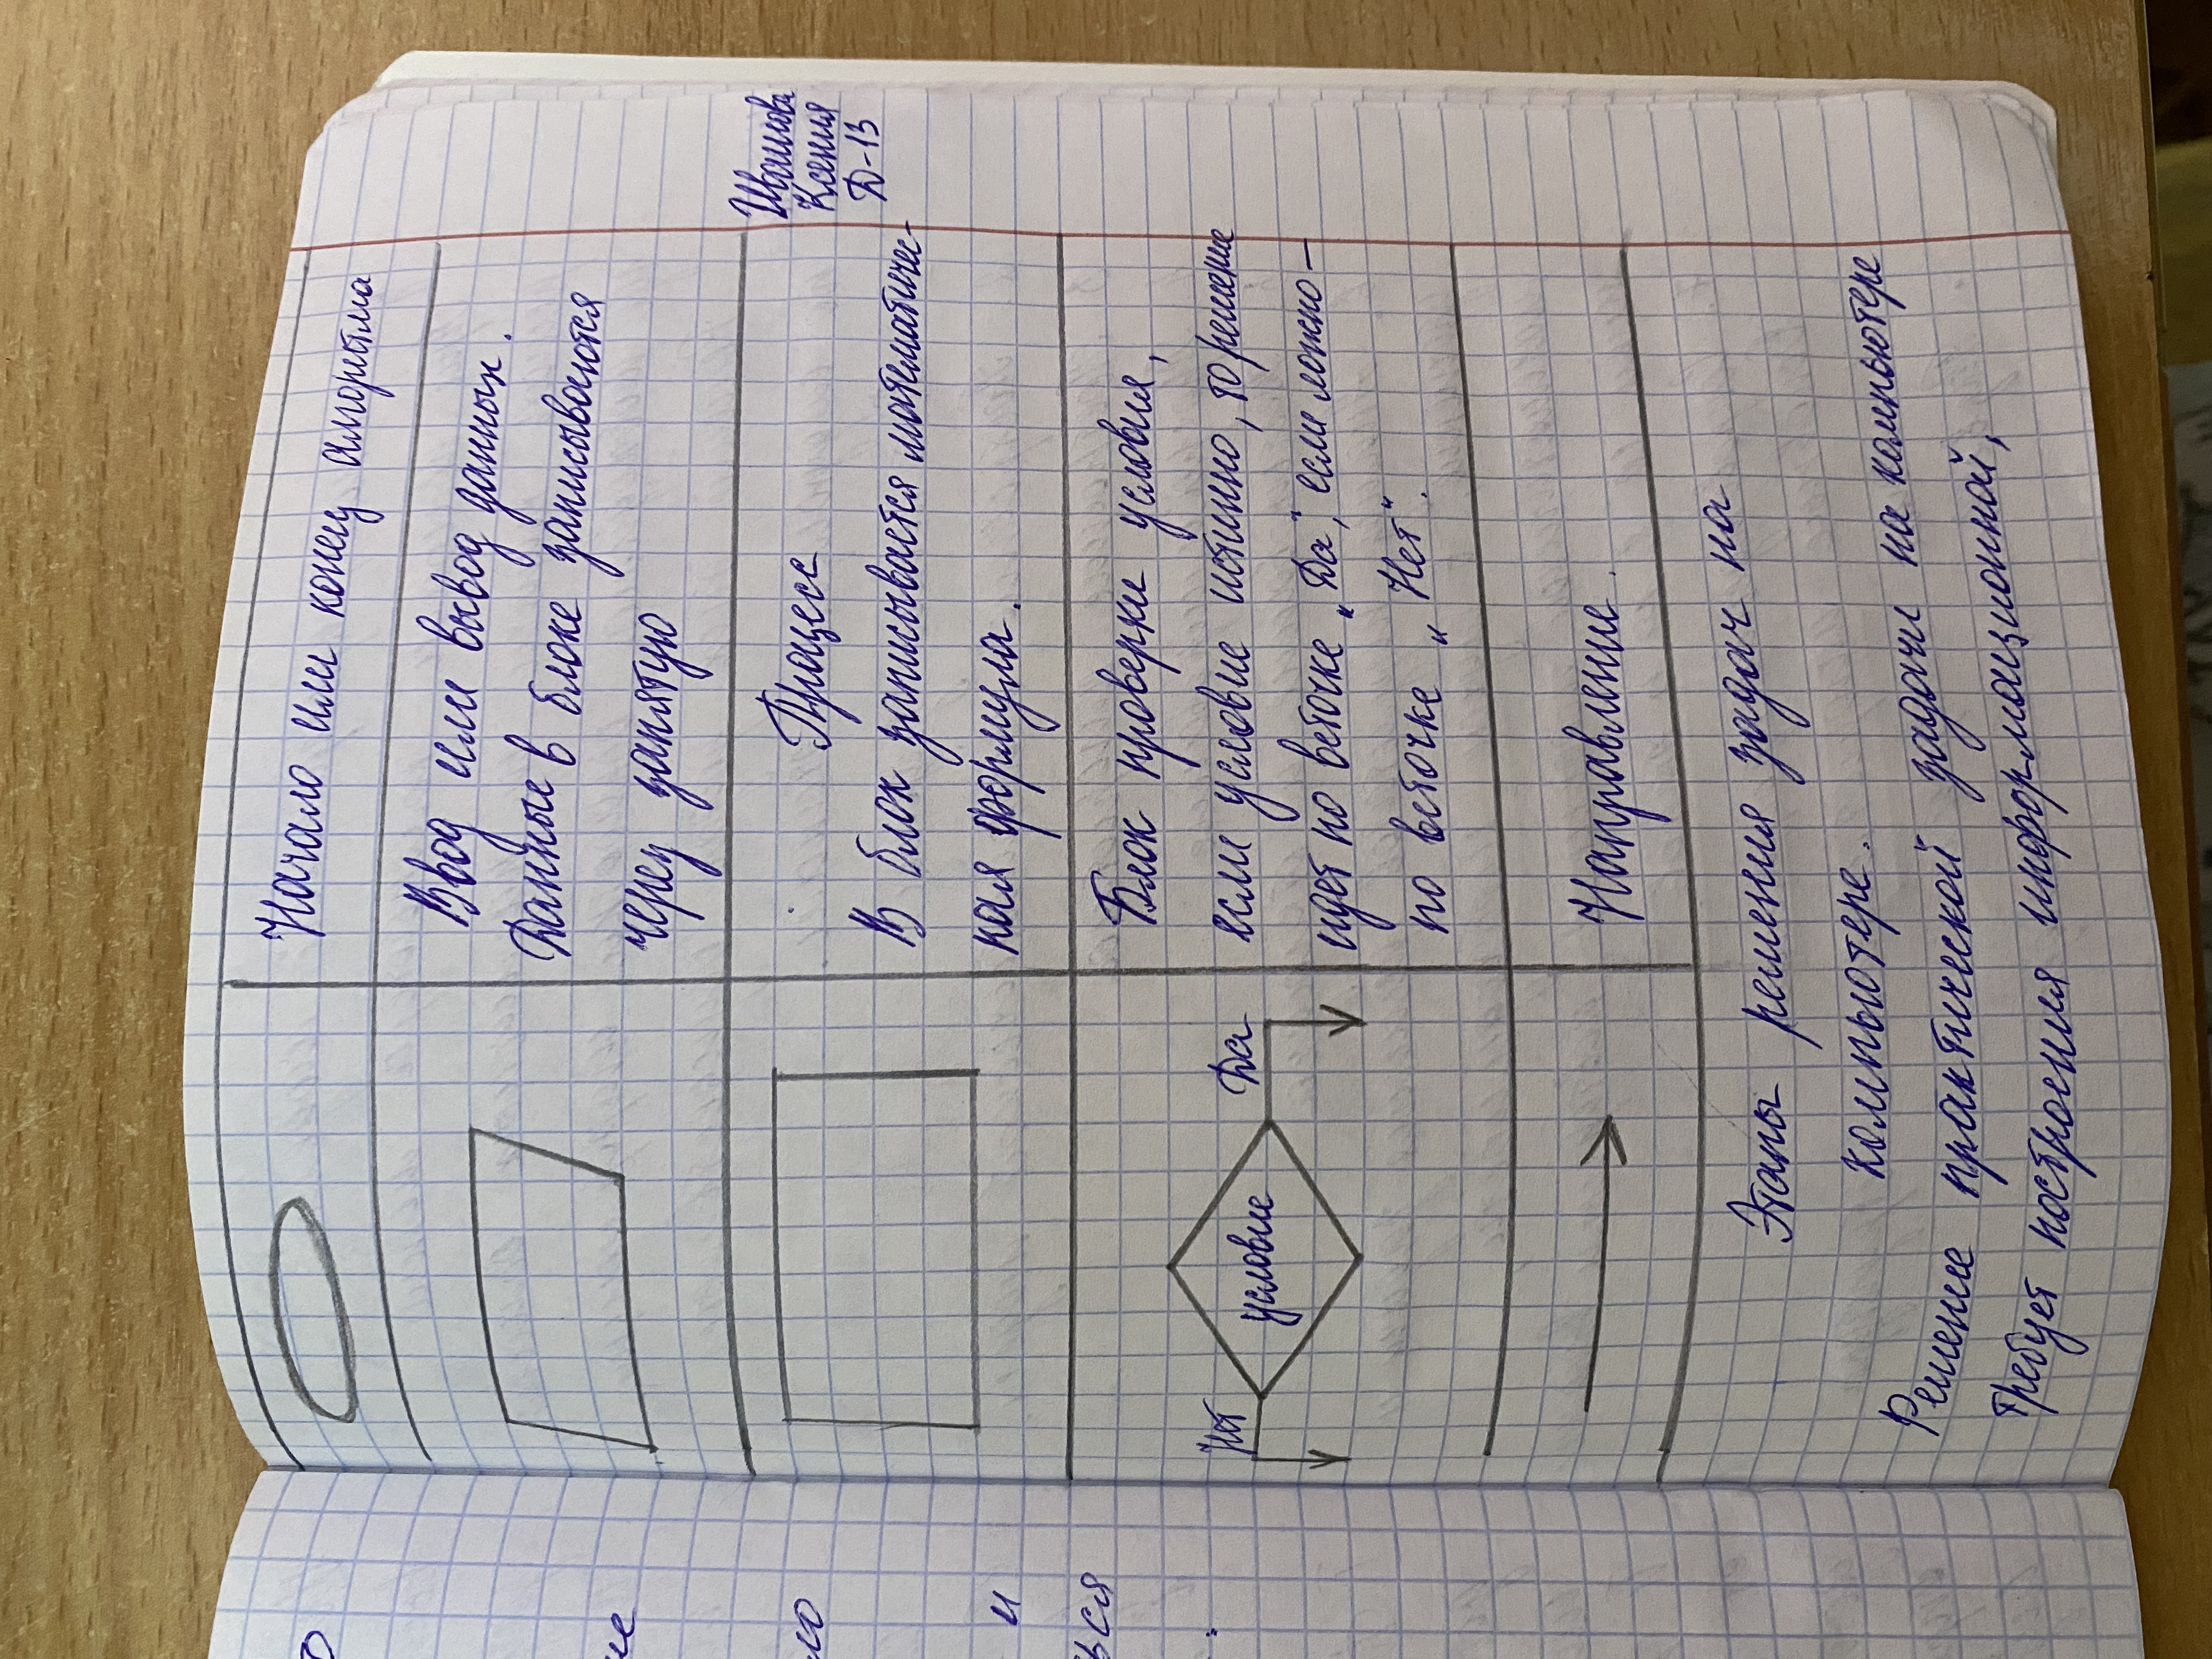 Начало или конец алгоритма
Ввод или вывод данных.
Данные в блоке записываются
через запятую
Ксения
Д-13
Процесс
В блок записывается математичес-
кая формула.
Блок проверки условия,
если условие истинно, то решение
идет по веточке „Да", если ложно –
по веточке „Нет".
Нет
условие
Да
Направление.
Этапы решения задач на
компьютере.
Решение практической задачи на компьютере
требует построения информационной,
о
ие
ло
и
вся